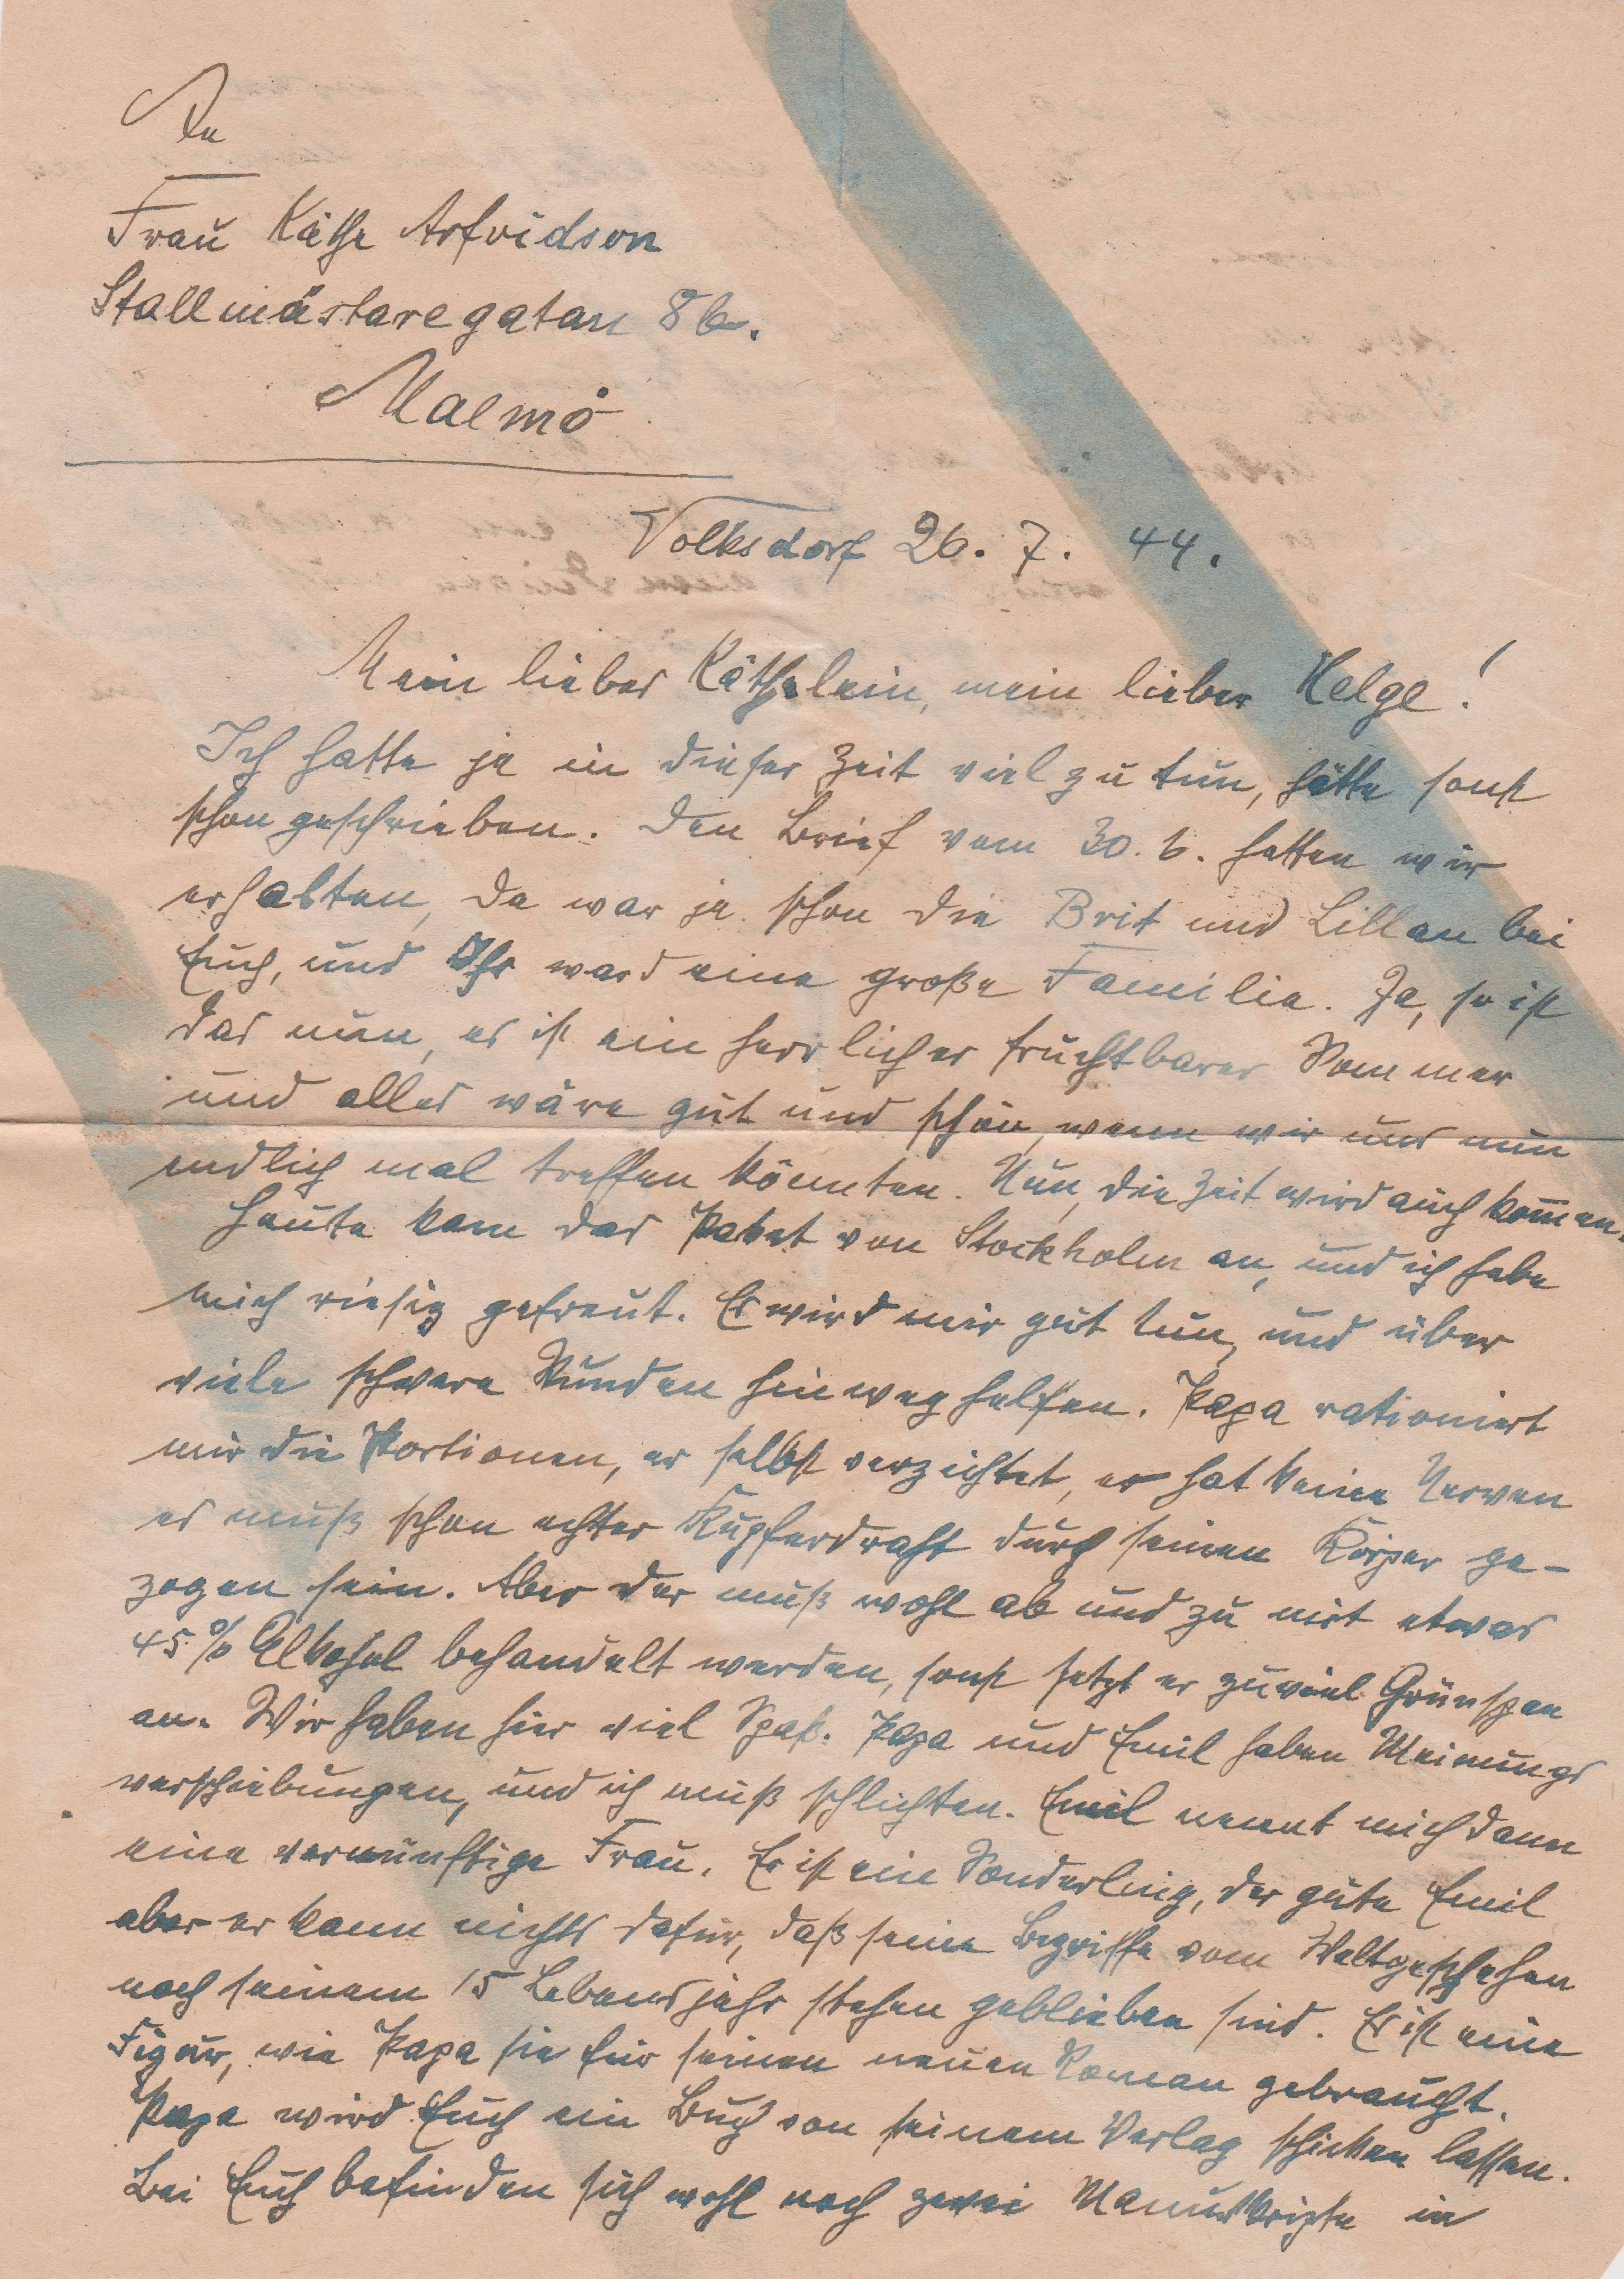 An
Frau Käthe Arfvidson
Stallmästaregatan 8b.
Malmö
Volksdorf 26. 7. 44.
Mein liebes Käthelein, mein lieber Helge!
Ich hatte ja in dieser Zeit viel zu tun, hätte sonst
schon geschrieben. Den Brief vom 30. 6. hatten wir
erhalten, da war ja schon die Brit und Lillan bei
Euch, und Ihr ward eine große Familie. Ja, so ist
das nun, es ist ein herrlicher fruchtbarer Sommer
und alles wäre gut und schön, wenn wir uns nun
endlich mal treffen könnten. Nun, die Zeit wird auch kom̄en.
Heute kam das Paket von Stockholm an, und ich habe
mich riesig gefreut. Es wird mir gut tun, und über
viele schwere Stunden hinweg helfen. Papa rationiert
mir die Portionen, er selbst verzichtet, er hat keine Nerven
es muß schon echter Kupferdraht durch seinen Körper ge-
zogen sein. Aber der muß wohl ab und zu mit etwas
45 % Alkohol behandelt werden, sonst setzt er zuviel Grünspan
an. Wir haben hier viel Spaß. Papa und Emil haben Meinungs
verschiebungen, und ich muß schlichten. Emil nennt mich dann
eine vernünftige Frau. Er ist ein Sonderling, der gute Emil
aber er kann nichts dafür, daß seine Begriffe vom Weltgeschehen
nach seinem 15 Lebensjahr stehen geblieben sind. Er ist eine
Figur, wie Papa sie für seinen neuen Roman gebraucht.
Papa wird Euch ein Buch von seinem Verlag schicken lassen.
Bei Euch befinden sich wohl noch zwei Manuskripte in